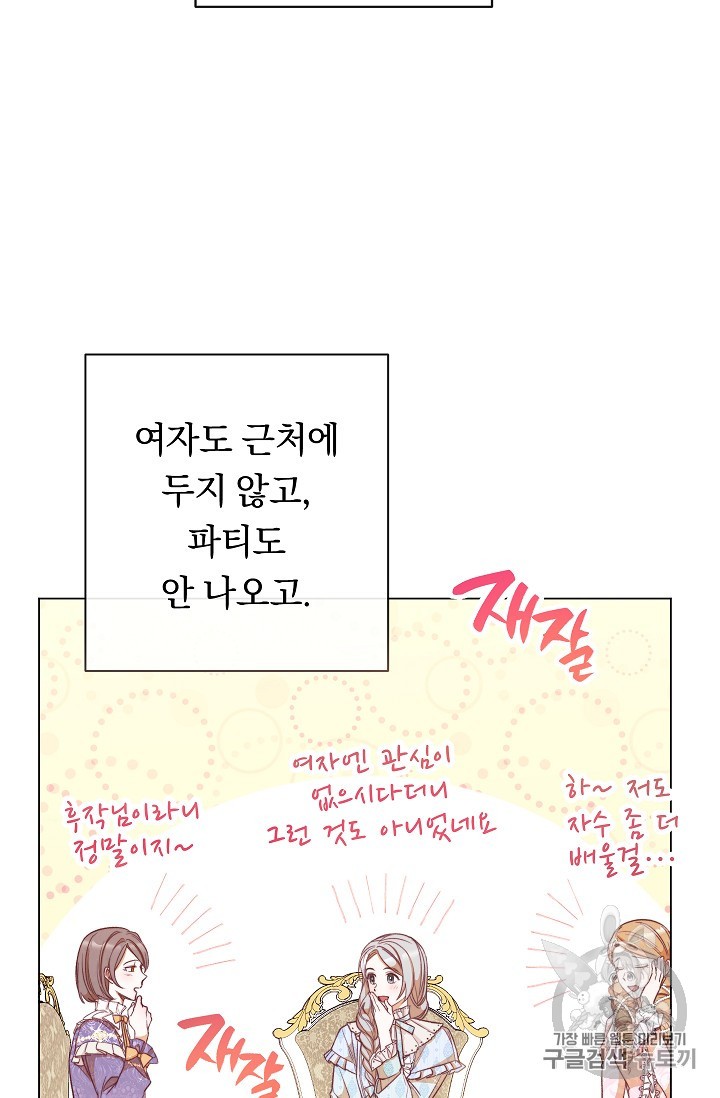 여자도 근처에
두지 않고,
파티도
안 나오고.
재잘
여자엔 관심이
없으시다더니
그런 것도 아니었네요
하~ 저도
자수 좀 더
배울걸...
후작님이라니
정말이지~
재잘
가장 빠른 웹툰 미리보기
구글검색 뉴토끼